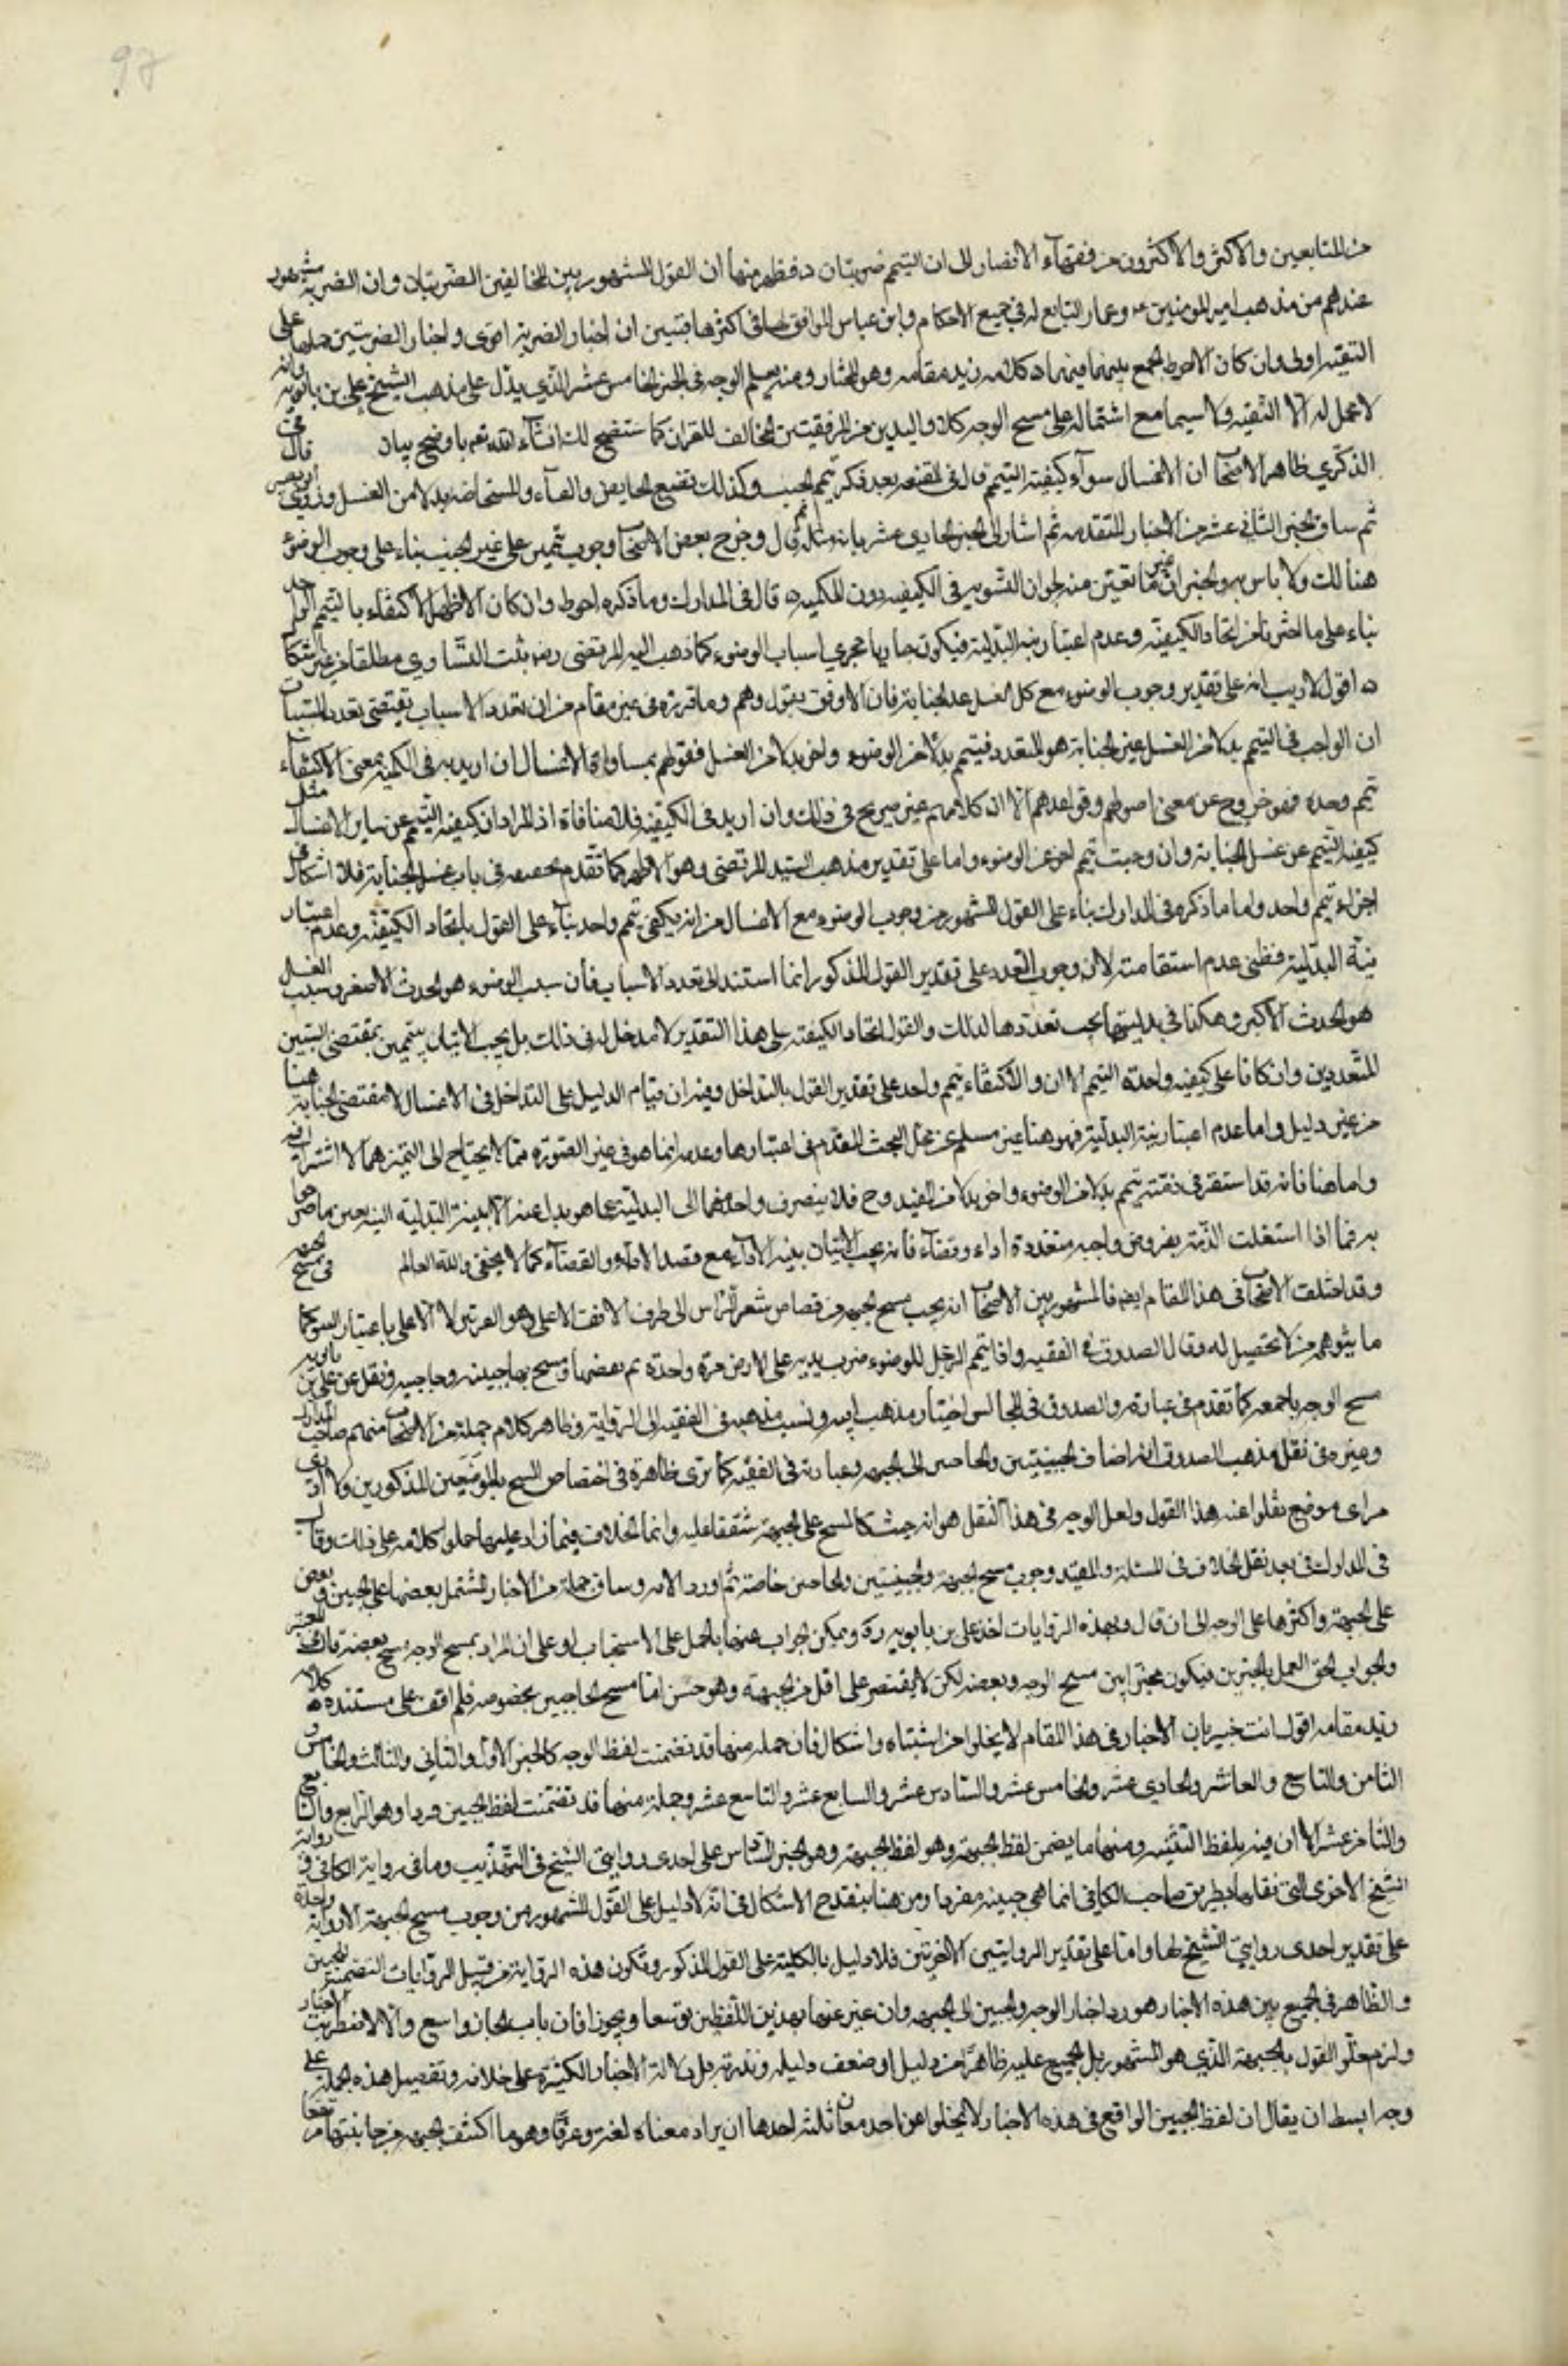 97
من التابعين والاكثر والاكثرون من فقهآء الامصار الى ان التيمم ضربتان ه فظهر منها ان القول المشهور بين المخالفين الضربتان وان الضربة مشهور
عندهم من مذهب امير المومنين ع وعمار التابع له في جميع الاحكام وابن عباس الموافق لهما في اكثرها فتبين ان اخبار الضربة اقوى واخبار الضربتين حملها على
التقيه اولى وان كان الاحوط الجمع بينهما فيهما ه كلامه زيد مقامه وهو المختار ومنه يعلم الوجه في الخبر الخامس عشر الذي يدل على مذهب الشيخ علي بن بابويه وانه
لا محمل له الا التقيه ولا سيما مع اشتماله على مسح الوجه كلا واليدين من المرفقين المخالف للقران كما ستضح لك انشآء الله تعم باوضح بيان قال في
الذكري ظاهر الاصحاب ان الاغسال سوآء في كيفيه التيمم قال في المقنعه بعد ذكر تيمم الجنب وكذلك تصنع الحايض والنفسآء والمستحاضه بدلا من الغسل وروى ابو بصير
ثم ساق الخبر الثاني عشر من الاخبار المتقدمه ثم اشار الى الخبر الحادي عشر بانه مثله ثم قال وخرج بعض الاصحاب وجوب تيممين على غير الجنب بناء على وجوب الوضوء
هنالك ولا باس به والخبران غير مانعين منه لجواز التسويه في الكيفيه دون الكميه ه قال في المدارك وما ذكره احوط وان كان الاظهر الاكتفاء بالتيمم الواحد
بناء على ما اخترناه من اتحاد الكيفيه وعدم اعتبار نيه البدليه فيكون جاريا مجري اسباب الوضوء كما ذهب اليه المرتضى رض ثبت التساوي مطلقا من غير اشكال
ه اقول لا ريب انه على تقدير وجوب الوضوء مع كل غسل عدا الجنابة فان الاوفق بقولهم وما قرروه في غير مقام من ان تعدد الاسباب يقتضى تعدد المسببات
ان الواجب في التيمم بدلا من الغسل غير الجنابة هو التعدد فتيمم بدلا من الوضوء واخر بدلا من الغسل فقولهم بمساواة الاغسال ان اريد به في الكميه بمعنى الاكتفاء
تيمم وحده فهو خروج عن معنى اصولهم وقواعدهم الا ان كلامهم غير صريح في ذلك وان اريد في الكيفيه فلا منافاة اذ المراد ان كيفيه التيمم عن ساير الاغسال مثل
كيفيه التيمم عن غسل الجنابة وان وجبت تيمم اخر عن الوضوء واما على تقدير مذهب السيد المرتضى وهو الاظهر كما تقدم تحقيقه في باب غسل الجنابة فلا اشكال في
اجزاء تيمم واحد واما ما ذكره في المدارك بناء على القول المشهور من وجوب الوضوء مع الاغسال من انه يكفى تيمم واحد بنآء على القول باتحاد الكيفيه وعدم اعتبار
نية البدلية فظني عدم استقامته لان وجوب التعدد على تقدير القول المذكور انما استند الى تعدد الاسباب فان سبب الوضوء هو الحدث الاصغر وسبب الغسل
هو الحدث الاكبر وهكذا في بدليتها يجب تعددها لذلك والقول باتحاد الكيفيه على هذا التقدير لا مدخل له في ذلك بل يجب الاتيان بتيممين بمقتضى السببين
المتعددين وان كانا على كيفيه واحده التيمم الا ان والاكتفاء بتيمم واحد على تقدير القول بالتداخل وفيه ان قيام الدليل على التداخل في الاغسال لا مقتضى لجريانه هنا
من غير دليل واما عدم اعتبار نية البدلية فهو هنا غير مسلم عن محل البحث المتقدم في اعتبارها وعدمه انما هو في غير الصورة مما لا يحتاج الى التميز هما لا اشتراك فيه
واما هنا فانه قد استقر في ذمته تيمم بدلا من الوضوء واخر بدلا من الغسل وح فلا ينصرف واحد منهما الى البدلية عما هو بدل عنه الا بنية البدلية اليه بعين ما صرحوا
به فيما اذا اشتغلت الذمة بفروض واجبه متعددة اداء وقضآء فانه يجب الاتيان بنية الادآء مع قصد الادآء والقضآء كما لا يخفى والله العالم
وقد اختلف الاصحاب في هذا المقام ايضا فالمشهور بين الاصحاب انه يجب مسح الجبهه من قصاص شعر الراس الى طرف الانف الاعلى وهو العرنين لا الاعلى باعتبار السمو كما
ما يتوهم من لا تحصيل له وقال الصدوق في الفقيه واذا تيمم الرجل للوضوء ضرب يديه على الارض مرة واحدة ثم نفضها ومسح بهما جبينه وحاجبيه ونقل عن علي بن بابويه
مسح الوجه باجمعه كما تقدم في عبارته والصدوق في المجالس اختيار مذهب ابيه ونسب مذهبه في الفقيه الى الرواية وظاهر كلام جملة من الاصحاب منهم صاحب المدارك
وغيره في نقل مذهب الصدوق انه اضاف الجبينين والحاجبين الى الجبهه وعبارته في الفقيه كما ترى ظاهرة في اختصاص المسح بالموضعين المذكورين ولا ادري
من اى موضع نقلوا عنه هذا القول ولعل الوجه في هذا النقل هو انه حيث كان المسح على الجبهة متفقا عليه وانما الخلاف فيما زاد عليها حملوا كلامه على ذلك وقال
في المدارك في بعد نقل الخلاف في المسئلة والمعتمد وجوب مسح الجبهة والجبينين والحاجبين خاصة ثم اورد الادلة وساق جملة من الاخبار المشتمل بعضها على الجبين وبعض
على الجبهة واكثرها على الوجه الى ان قال وبهذه الروايات اخذ علي بن بابويه ره ويمكن الجواب عنها بالحمل على الاستحباب او على ان المراد بمسح الوجه مسح بعضه قال في المعتبر
والجواب الحق العمل بالخبرين فيكون مخيرا بين مسح الوجه وبعضه لكن لا يقتصر على اقل من الجبهة وهو حسن اما مسح الحاجبين بخصوصه فلم اقف على مستنده ه كلامه
زيد مقامه اقول انت خبير بان الاخبار في هذا المقام لا يخلوا من اشتباه واشكال فان جمله منها قد تضمنت لفظ الوجه كالخبر الاول والثاني والثالث والخامس
الثامن والتاسع والعاشر والحادي عشر والخامس عشر والسادس عشر والسابع عشر والتاسع عشر وجملة منها قد تضمنت لفظ الجبين فردا وهو الرابع والسابع
والثامن عشر الا ان فيه بلفظ التثنيه ومنها ما يضمن لفظ الجبهة وهو لفظ الجبهة وهو الخبر السادس على احدى روايتى الشيخ في التهذيب وما في رواية الكافي ورواية
الشيخ الاخرى التي نقلها بطريق صاحب الكافي انما هي جبينه مفردا ومن هنا ينقدح الاشكال في انه لا دليل على القول المشهور من وجوب مسح الجبهة الا رواية واحدة
على تقدير احدى روايتى الشيخ لها واما على تقدير الروايتين الاخرتين فلا دليل بالكلية على القول المذكور وتكون هذه الرواية من قبيل الروايات المتضمنة للجبين
والظاهر في الجميع بين هذه الاخبار هو رد اخبار الوجه والجبين الى الجبهه وان عبر عنها بهذين اللفظين توسعا وتجوزا فان باب المجاز واسع والا لاضطربت الاخبار
ولزم خلو القول بالجبهة الذي هو المشهور بل المجمع عليه ظاهرا من دليل او ضعف دليله وندرته بل دلالة الاخبار الكثيرة على خلافه وتفصيل هذه الجملة على
وجه ابسط ان يقال ان لفظ الجبين الواقع في هذه الاخبار لا يخلوا من احد معان ثلثه احدها ان يراد معناه لغة وعرفا وهو ما اكتنف الجبهه من جانبيها مرتفعا